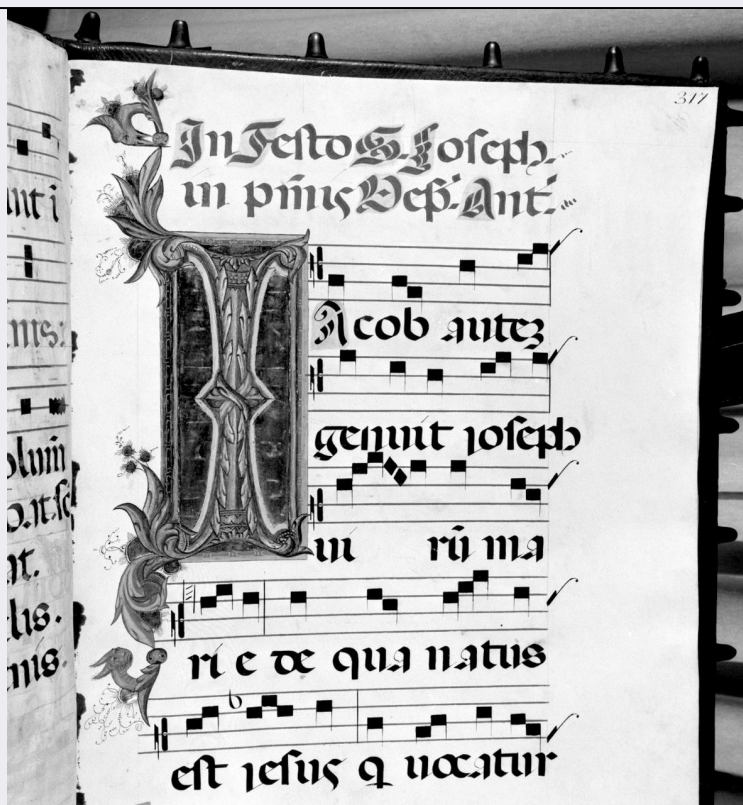 317
In Festo S. Joseph.
in prĩis Vesp. Ant.
IAcob autez
genuit ioseph
ui rũ ma
ri e de qua natus
est iesus q uocatur